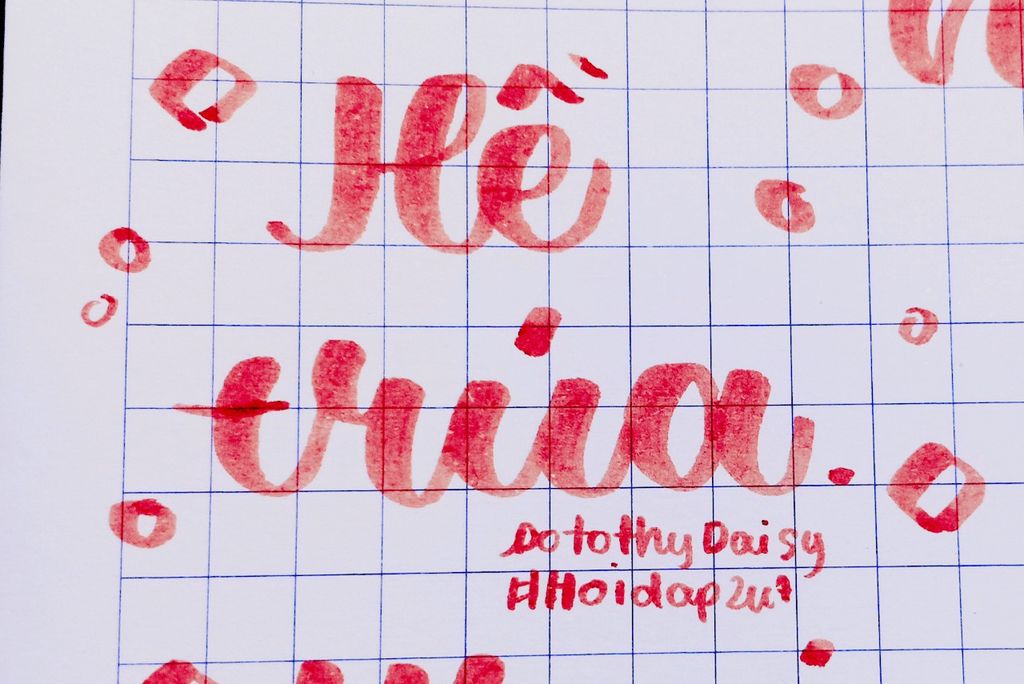 Hề
trưa.
Dotothy Daisy
#Hoidap247